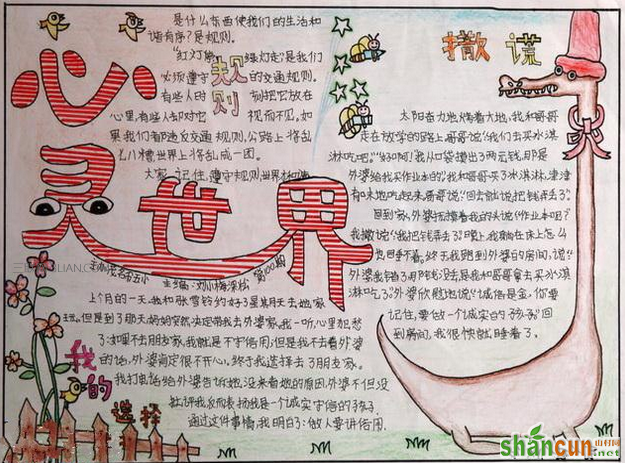 是什么东西使我们的生活和
谐有序？是规则。
"红灯停 绿灯走"是我们
必须遵守 的交通规则。
有些人时 刻把它放在
心里,有些人却对它 视而不见,如
果我们都违反交通规则,公路上将乱
七八糟世界上将乱成一团。
大家记住,遵守规则世界
规则
心灵世界
撒谎
太阳奋力地烤着大地,我和哥哥
走在放学的路上,哥哥说:"我们去买冰淇
淋吃吧。""好啊!"我从口袋掏出了两元钱,那是
外婆给我买作业本的。"我和哥哥买了冰淇淋,津津
有味地吃起来,哥哥说:"回去就说把钱弄丢了。"
回到家,外婆抚摸着我的头说:"作业本呢?"
我撒谎说:"我把钱弄丢了。"晚上,我躺在床上怎么
也睡不着。终于我跑到外婆的房间,说:"
外婆我错了,那钱没丢是我和哥哥拿去买冰淇
淋吃了。"外婆欣慰地说:"诚信是金,你要
记住,要做一个诚实的孩子。"回
到房间,我很快就睡着了。
主编:刘小梅 深松 第100期
上个月的一天,我和张雪铃约好了星期天去她家
玩。但是到了那天,妈妈突然决定带我去外婆家。我一听,心里犯愁
了:如果不去朋友家,我就是不守信用;但是我不去看外婆
的话,外婆肯定很不开心,终于我选择去了朋友家。
我打电话给外婆告诉她没来看她的原因,外婆不但没
批评我,反而表扬我是一个诚实守信的孩子。
通过这件事情,我明白了:做人要讲信用.
我的选择
shancun
山村网
.net